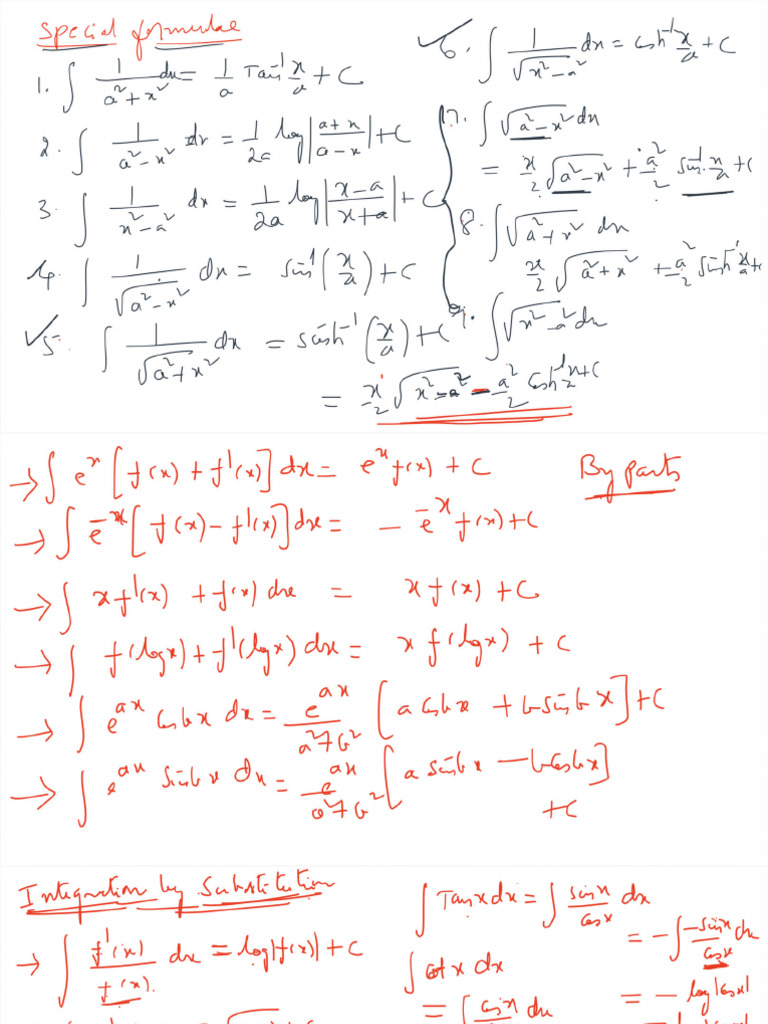 Special formulae
1. ∫ 1/(a²+x²) dx = 1/a Tan⁻¹ x/a + C
2. ∫ 1/(a²-x²) dx = 1/2a log|(a+x)/(a-x)| + C
3. ∫ 1/(x²-a²) dx = 1/2a log|(x-a)/(x+a)| + C
4. ∫ 1/√(a²-x²) dx = sin⁻¹(x/a) + C
5. ∫ 1/√(a²+x²) dx = sinh⁻¹(x/a) + C
6. ∫ 1/√(x²-a²) dx = cosh⁻¹ x/a + C
7. ∫ √(a²-x²) dx
= x/2 √(a²-x²) + a²/2 sin⁻¹ x/a + C
8. ∫ √(a²+x²) dx
x/2 √(a²+x²) + a²/2 sinh⁻¹ x/a + c
9. ∫ √(x²-a²) dx
= x/2 √(x²-a²) - a²/2 cosh⁻¹ x/a + C
By parts
→ ∫ eˣ [f(x) + f'(x)] dx = eˣ f(x) + C
→ ∫ e⁻ˣ [f(x) - f'(x)] dx = - e⁻ˣ f(x) + C
→ ∫ x f'(x) + f(x) dx = x f(x) + C
→ ∫ f(log x) + f'(log x) dx = x f(log x) + C
→ ∫ e^ax cos bx dx = e^ax/(a²+b²) [a cos bx + b sin bx] + C
→ ∫ e^ax sin bx dx = e^ax/(a²+b²) [a sin bx - b cos bx]
+ C
Integration by Substitution
→ ∫ f'(x)/f(x) dx = log|f(x)| + C
∫ Tan x dx = ∫ sin x/cos x dx
= - ∫ -sin x/cos x dx
= - log|cos x|
∫ cot x dx
= ∫ cos x/sin x dx